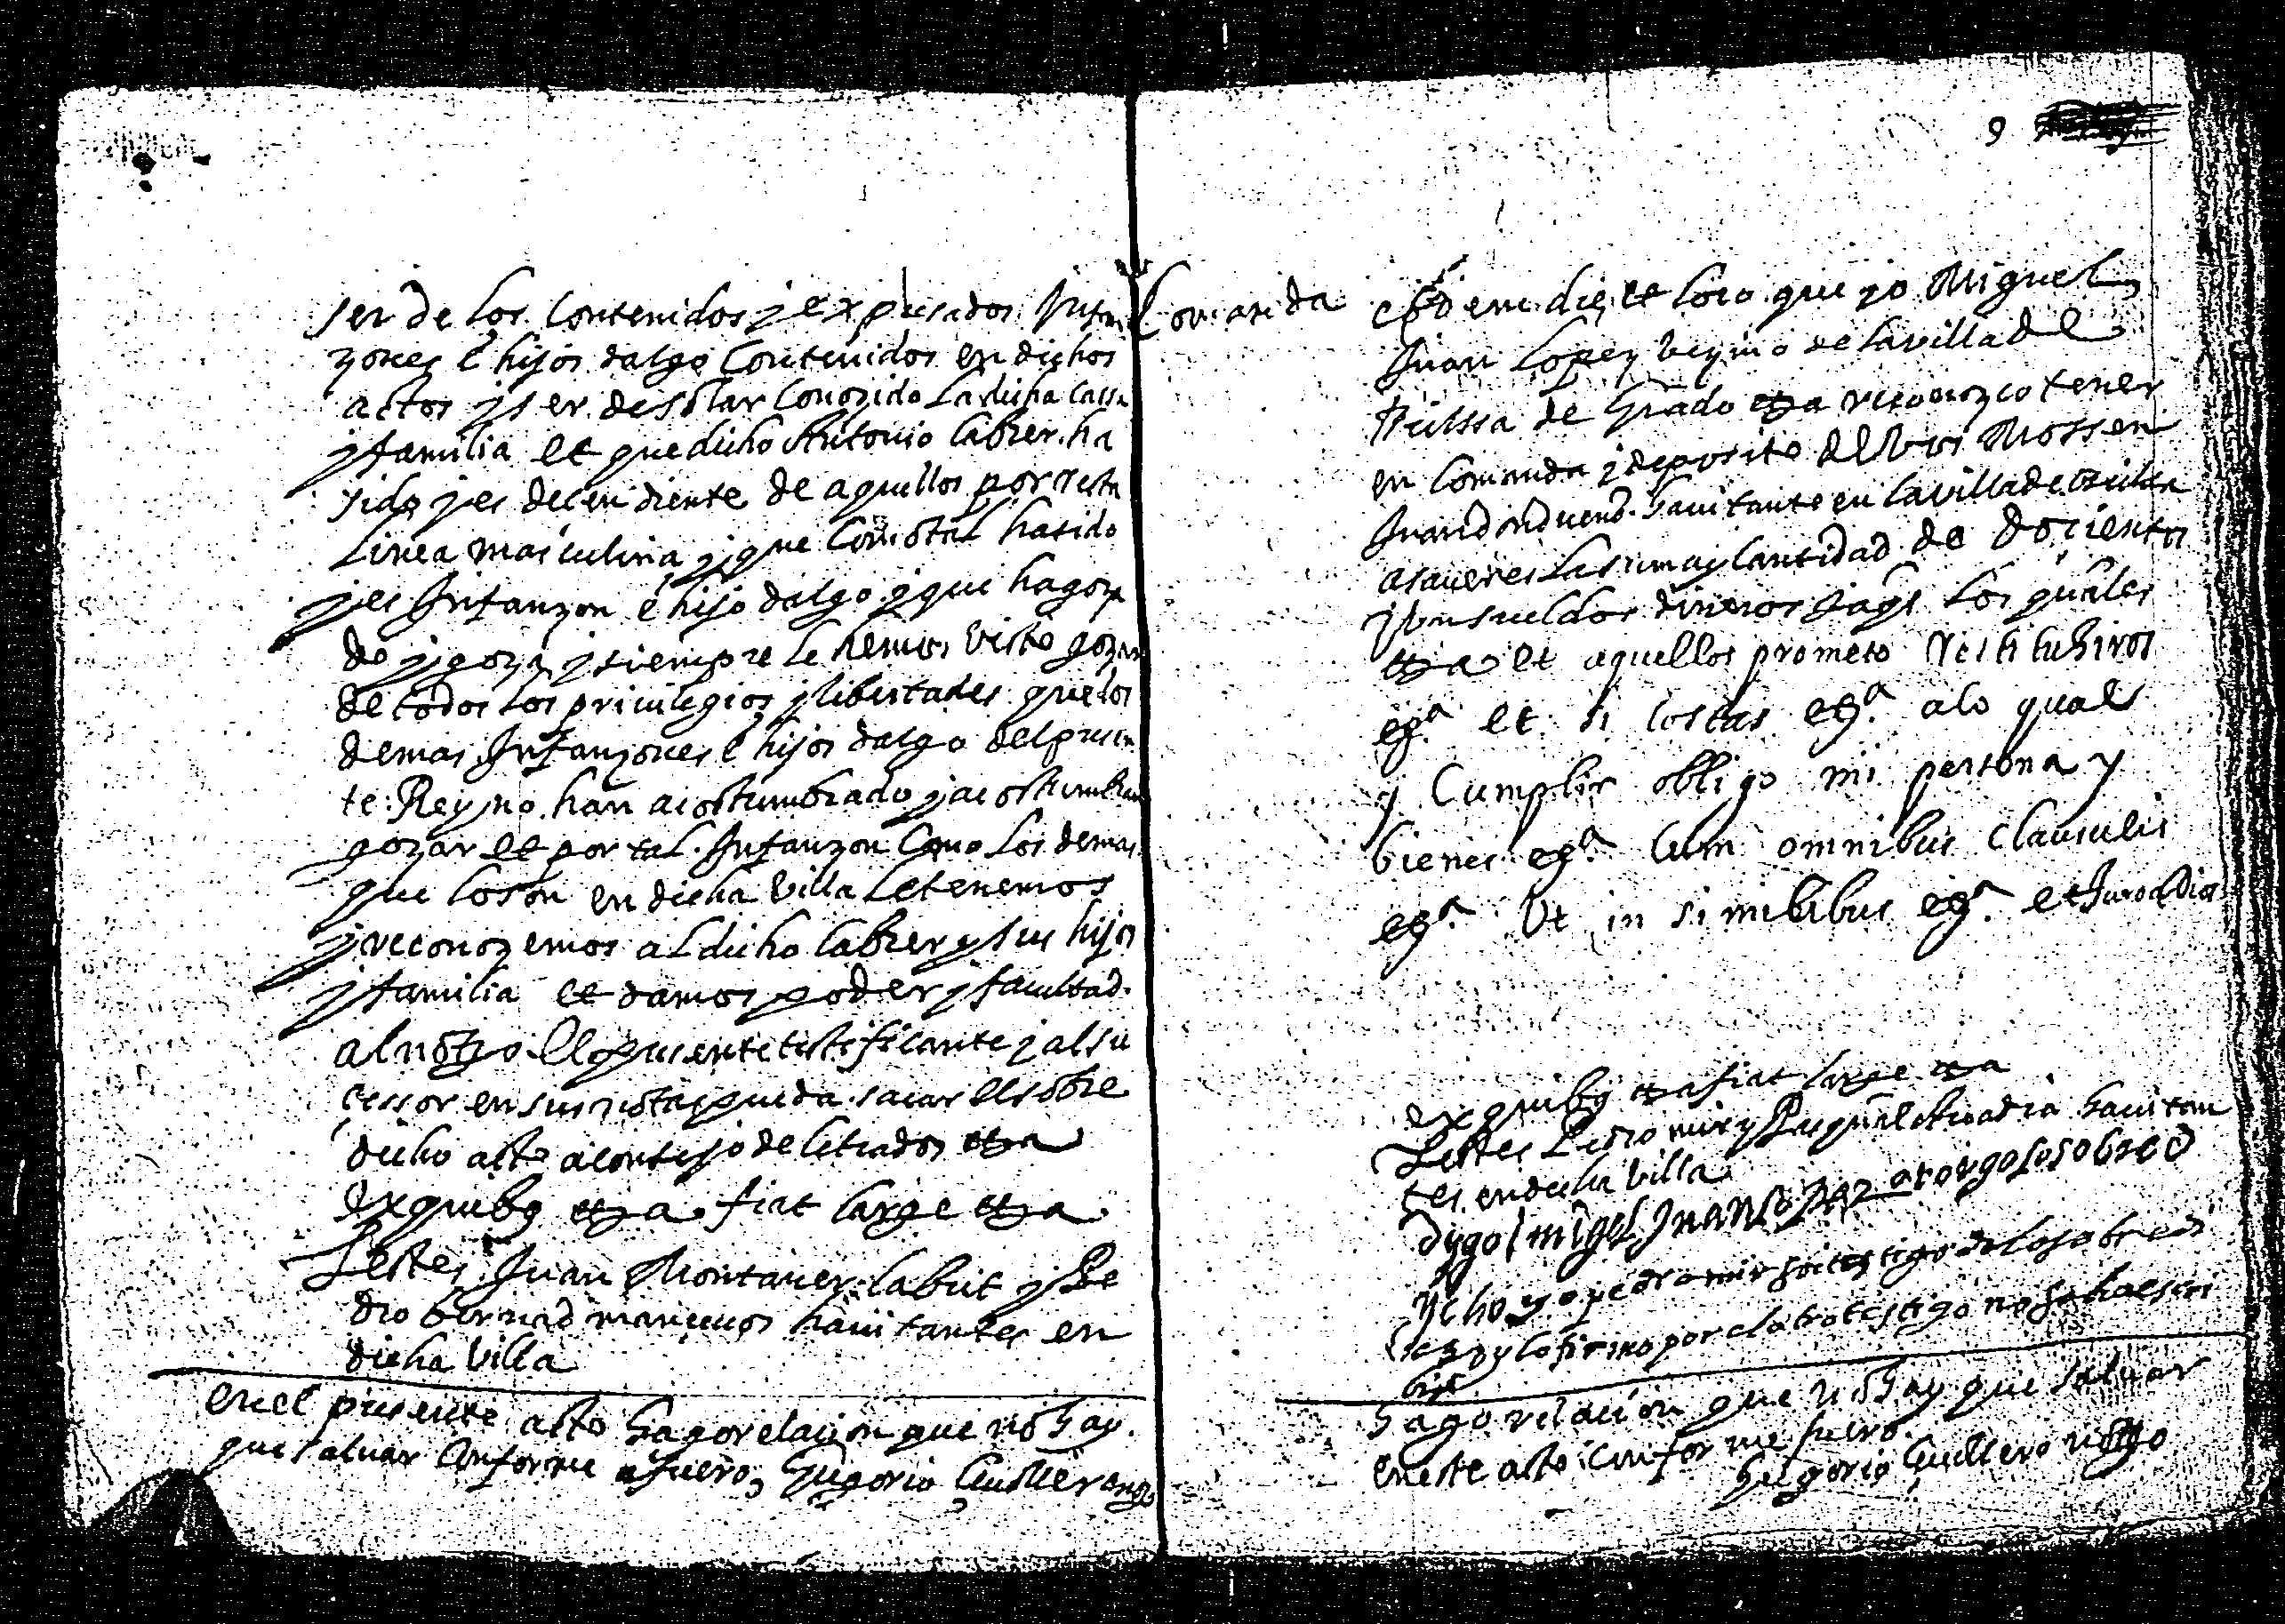 ser de los contenidos y expresados Infan
zones e hijos dalgo contenidos en dichos
actos y ser de solar conozido la dicha cassa
y familia et que dicho Antonio Cabrer ha
sido y es decendiente de aquellos por recta
linea masculina y que como tal ha sido
y es Infanzon e hijo dalgo y que ha goza
do y goza y siempre le hemos visto gozar
de todos los privilegios y libertades que los
demas Infanzones e hijos dalgo del presen
te Reyno han acostumbrado y acostumbran
gozar et por tal Infanzon como los demas
que lo son en dicha villa le tenemos
y reconozemos al dicho Cabrer y sus hijos
y familia et damos poder y facultad
al notro el presente testificante y al su
cessor en sus notas pueda sacar el sobre
dicho acto a consejo de letrados etta
ex quibus etta fiat large etta
Testes Juan Montaner labut y Pe
dro Bernad mancevos havitantes en
dicha villa
en el presente acto hago relacion que no hay
que salvar conforme a fuero, Gregorio Guillero notro
9
Comanda
Eodem die et loco que yo Miguel
Juan Lopez vezino de la villa de
de Grado etta reconozco tener
en comanda y deposito de vos Mossen
Juan havitante en la villa de
a saver es la suma y cantidad de docientos
y un sueldos dineros jaqs los quales
etta et aquellos prometo restituhiros
etta et si costas etta a lo qual
y cumplir obligo mi persona y
bienes etta Cum omnibus clausulis
etta Ut in similibus etta et Juro a Dios
ex quibus etta fiat large etta
Testes Pedro mir y Pasqual havitan
tes en dicha villa
dygo miguel Juan Lopez atorgo lo sobred
ycho yo pedro mir soi testigo de lo sobredi
y lo firmo por el otro testigo no sabia escri
bir
hago relacion que no hay que salvar
en este acto conforme fuero.
Gregorio Guillero notro